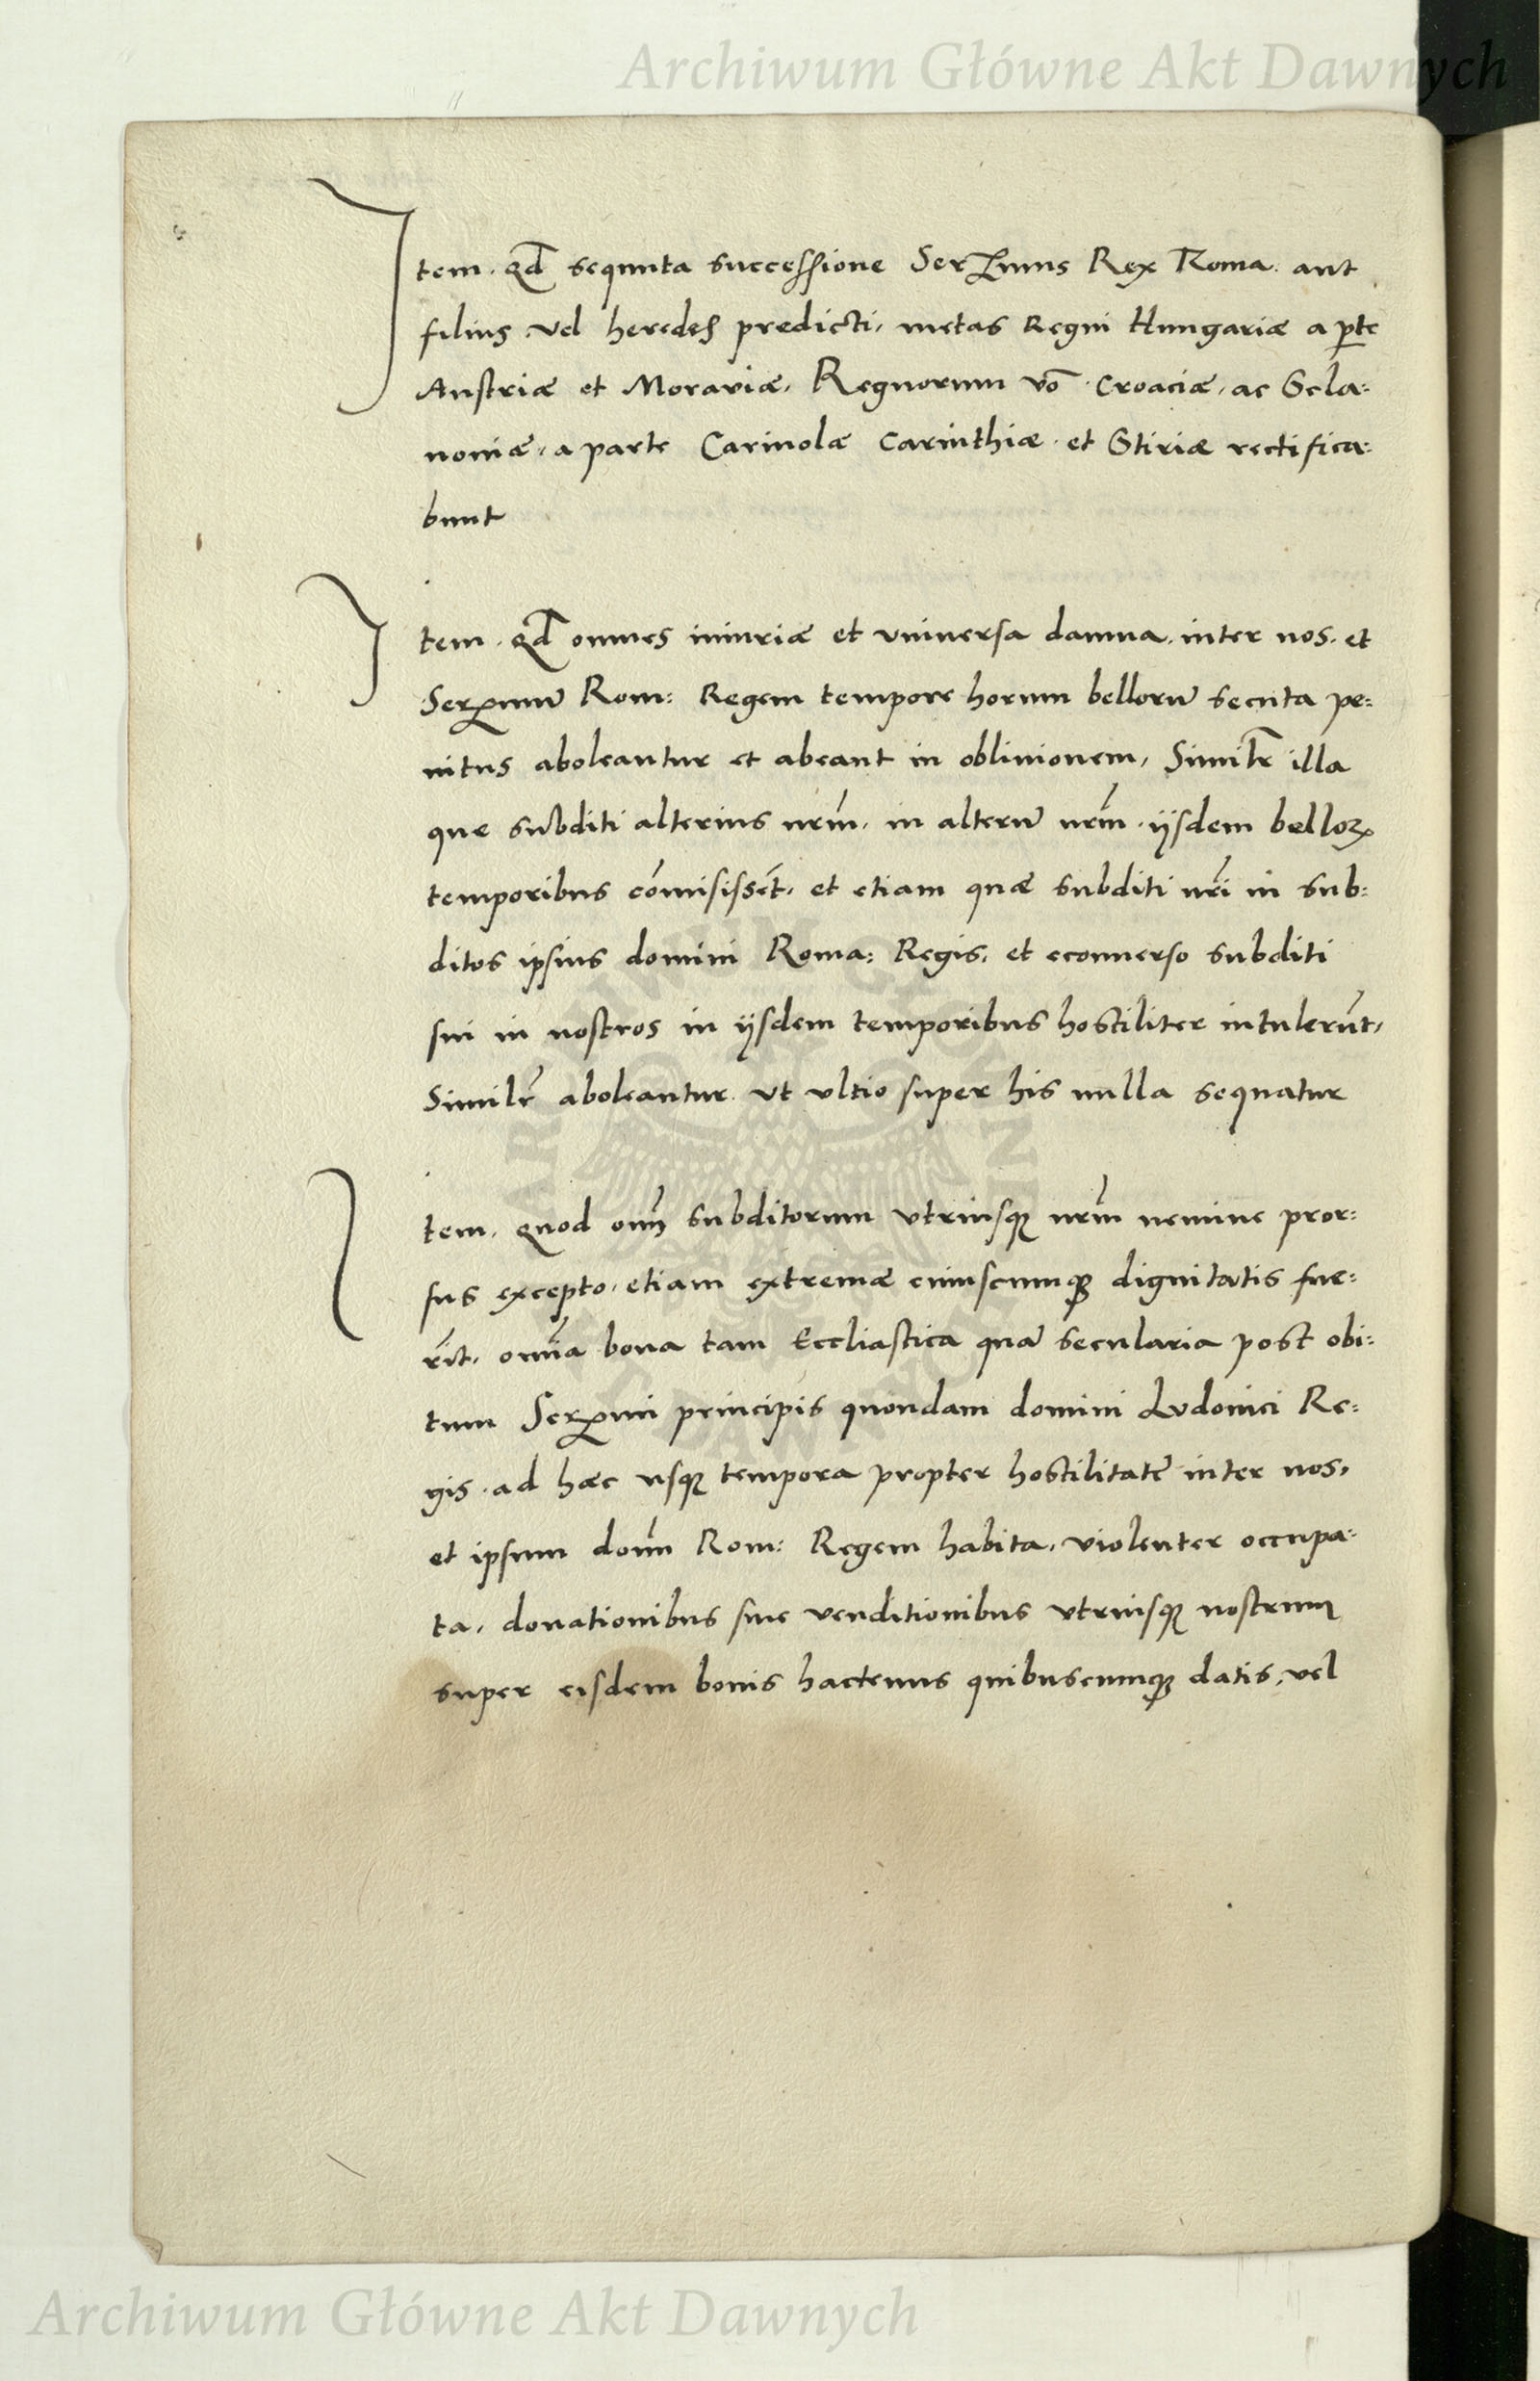 Archiwum Główne Akt Dawnych
Item. Qd̄ sequuta successione Serẜnus Rex Roma. aut
filius vel heredes predicti, metas Regni Hungariæ a ꝑte
Austriæ et Moraviæ, Regnorum vō Croaciæ, ac Scla:
noniæ, a parte Carinolæ Carinthiæ et Stiriæ rectifica:
bunt
Item. Qd̄ omnes iniuriæ et vniuersa damna. inter nos. et
Serꝫnum̄ Rom: Regem tempore horum bellorū secuta pe:
nitus aboleantur et abeant in obliuionem, Similr̄ illa
que subditi alterius nrm̄. in alterū nrm̄. ijsdem belloꝝ
temporibus cōmisissēt, et etiam quæ subditi nrī in sub:
ditos ipsius domini Roma: Regis, et econuerso subditi
sui in nostros in ijsdem temporibus hostiliter intulerūt,
Similr̄ aboleantur. vt vltio super his nulla sequatur
Item. quod om̄ subditorum vtriusqꝫ nrm̄ nemine pror:
sus excepto, etiam extremæ cuiuscumqꝫ dignitatis fue:
rīt, omīa bona tam Eccliastica quā secularia post obi:
tum Serꝫmi principis quondam domini Ludouici Re:
gis. ad hæc usqꝫ tempora propter hostilitatē inter nos,
et ipsum dom̄ Rom: Regem habita, violenter occupa:
ta, donationibus siue venditionibus vtriusqꝫ nostrum
super eisdem bonis hactenus quibuscumqꝫ datis, vel
Archiwum Główne Akt Dawnych